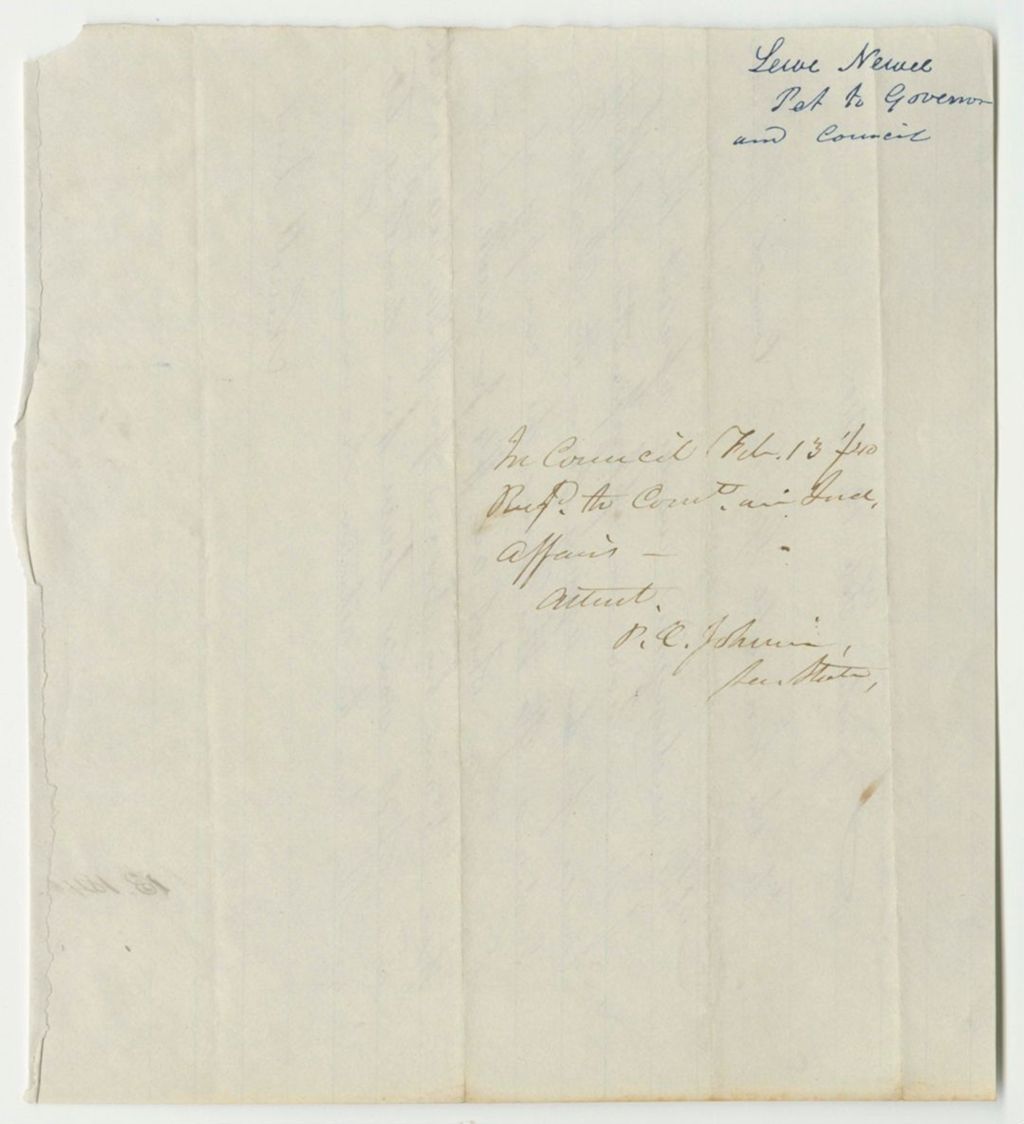 Newell
Pet to Governor
and Council
In Council Feb. 13 1840
Refd. to Comt. on Ind.
Affairs —
Attest.
P. C. Johnson,
Sec. State,